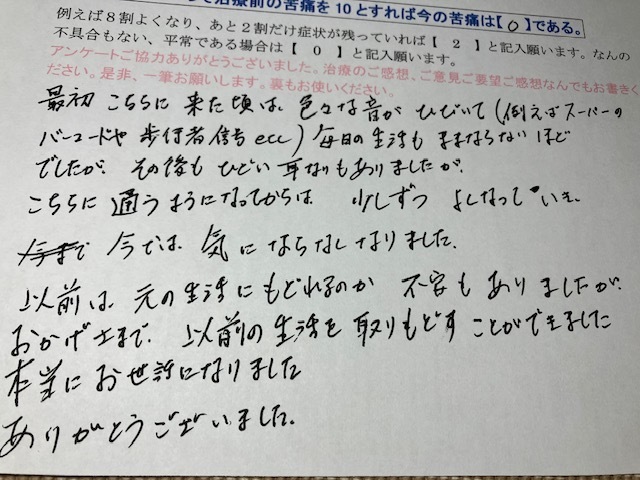 って治療前の苦痛を10とすれば今の苦痛は【 0 】である。
例えば8割よくなり、あと2割だけ症状が残っていれば【 2 】と記入願います。なんの
不具合もない、平常である場合は【 0 】と記入願います。
アンケートご協力ありがとうございました。治療のご感想、ご意見ご要望ご感想なんでもお書きく
ださい。是非、一筆お願いします。裏もお使いください。
最初 こちらに 来た頃は、色々な音が ひびいて(例えばスーパーの
バーコードや 歩行者信号 ecc) 毎日の生活も ままならないほど
でしたが、その後も ひどい 耳なりもありましたが、
こちらに 通うようになってからは 少しずつ よくなっていき、
今では、気に ならなくなりました。
以前は、元の生活にもどれるのか 不安も ありましたが、
おかげさまで、以前の生活を 取りもどす ことができました
本当に お世話になりました
ありがとうございました。